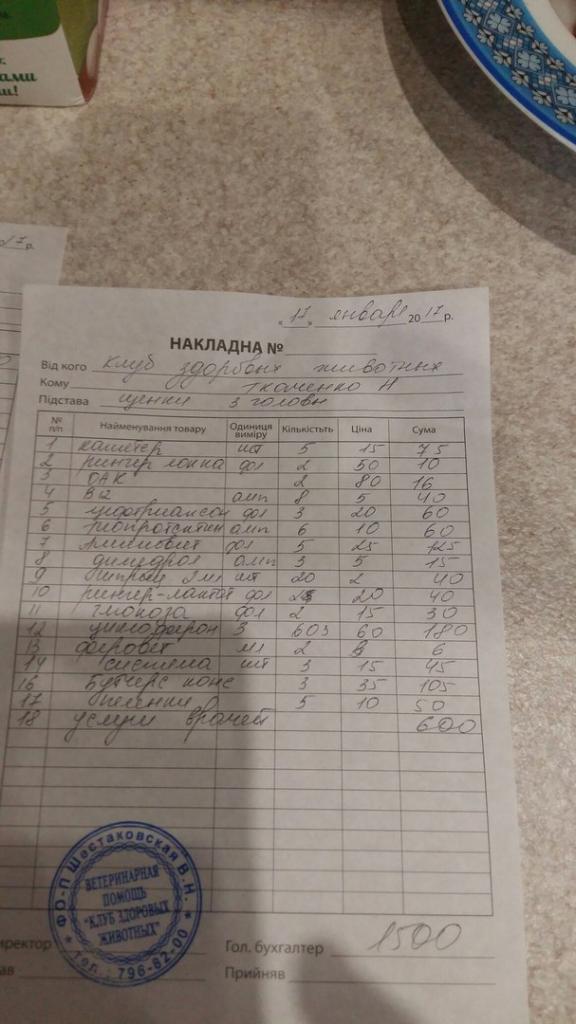 ами
и!
17 р.
"17" января 2017 р.
НАКЛАДНА №
Від кого Клуб здоровых животных
Кому Ткаченко Н
Підстава щенки 3 головы
№ п/п Найменування товару Одиниця виміру Кількість Ціна Сума
1 катетер шт 5 15 75
2 рингер фл 2 50 10
3 ОАК 2 80 16
4 В12 амп 8 5 40
5 цефтриаксон фл 3 20 60
6 амп 6 10 60
7 фл 5 25 125
8 димедрол амп 3 5 15
9 шприц шт 20 2 40
10 рингер-лактат фл 2 20 40
11 глюкоза фл 2 15 30
12 циклоферон 3 60 180
13 мл 2 3 6
14 система шт 3 15 45
16 конс 3 35 105
17 пеленки 5 10 50
18 услуги врачей 600
ФО-П Шестаковская В.Н.
ВЕТЕРИНАРНАЯ
ПОМОЩЬ
"КЛУБ ЗДОРОВЫХ
ЖИВОТНЫХ"
тел.: 796-82-00
иректор Гол. бухгалтер 1500
ав Прийняв